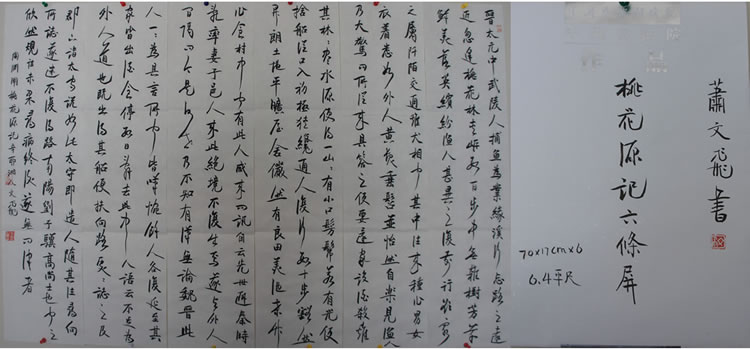 蕭文飛書
桃花源記六條屏
70x17cmx6
6.4平尺
晉太元中武陵人捕魚為業緣溪行忘路之遠
近忽逢桃花林夾岸數百步中無雜樹芳草
鮮美落英繽紛漁人甚異之復前行欲窮
之屬阡陌交通雞犬相聞其中往來種作男女
衣著悉如外人黃髮垂髫並怡然自樂見漁人
乃大驚問所從來具答之便要還家設酒殺雞
其林林盡水源便得一山山有小口髣髴若有光便
捨船從口入初極狹纔通人復行數十步豁然
開朗土地平曠屋舍儼然有良田美池桑竹
作食村中聞有此人咸來問訊自云先世避秦時
亂率妻子邑人來此絕境不復出焉遂與外人
間隔問今是何世乃不知有漢無論魏晉此
人一一為具言所聞皆嘆惋餘人各復延至其
家皆出酒食停數日辭去此中人語云不足為
外人道也既出得其船便扶向路處處誌之及
郡下詣太守說如此太守即遣人隨其往尋向
所誌遂迷不復得路南陽劉子驥高尚士也聞之
欣然規往未果尋病終後遂無問津者
陶淵明桃花源記 文飛